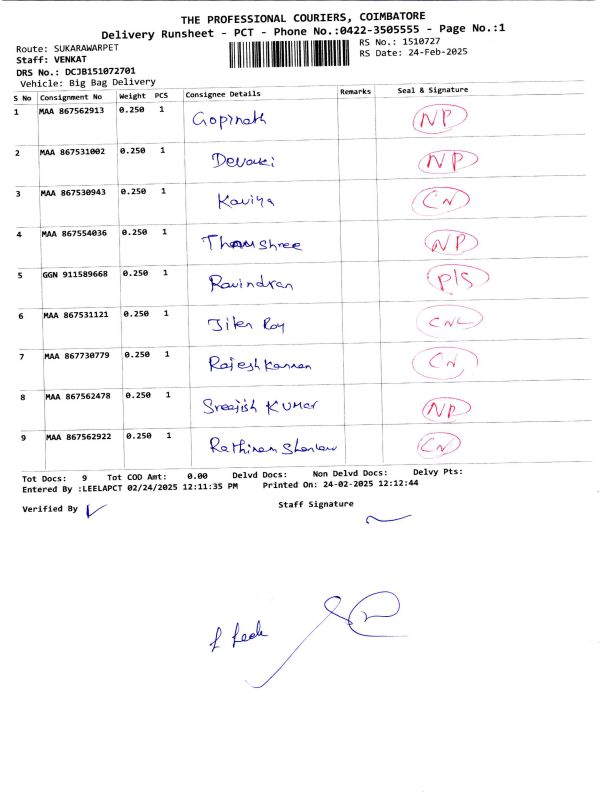 THE PROFESSIONAL COURIERS, COIMBATORE
Delivery Runsheet - PCT - Phone No.:0422-3505555 - Page No.:1
Route: SUKARAWARPET
RS No.: 1510727
Staff: VENKAT
RS Date: 24-Feb-2025
DRS No.: DCJB151072701
Vehicle: Big Bag Delivery
S No Consignment No Weight PCS Consignee Details Remarks Seal & Signature
1 MAA 867562913 0.250 1 Gopinath NP
2 MAA 867531002 0.250 1 Devaki NP
3 MAA 867530943 0.250 1 Kaviya CN
4 MAA 867554036 0.250 1 Thanushree NP
5 GGN 911589668 0.250 1 Ravindran P/S
6 MAA 867531121 0.250 1 Jiten Roy CNL
7 MAA 867730779 0.250 1 Rajesh Kannan CN
8 MAA 867562478 0.250 1 Sreejish KUMar NP
9 MAA 867562922 0.250 1 CN
Tot Docs: 9 Tot COD Amt: 0.00 Delvd Docs: Non Delvd Docs: Delvy Pts:
Entered By :LEELAPCT 02/24/2025 12:11:35 PM Printed On: 24-02-2025 12:12:44
Verified By
Staff Signature